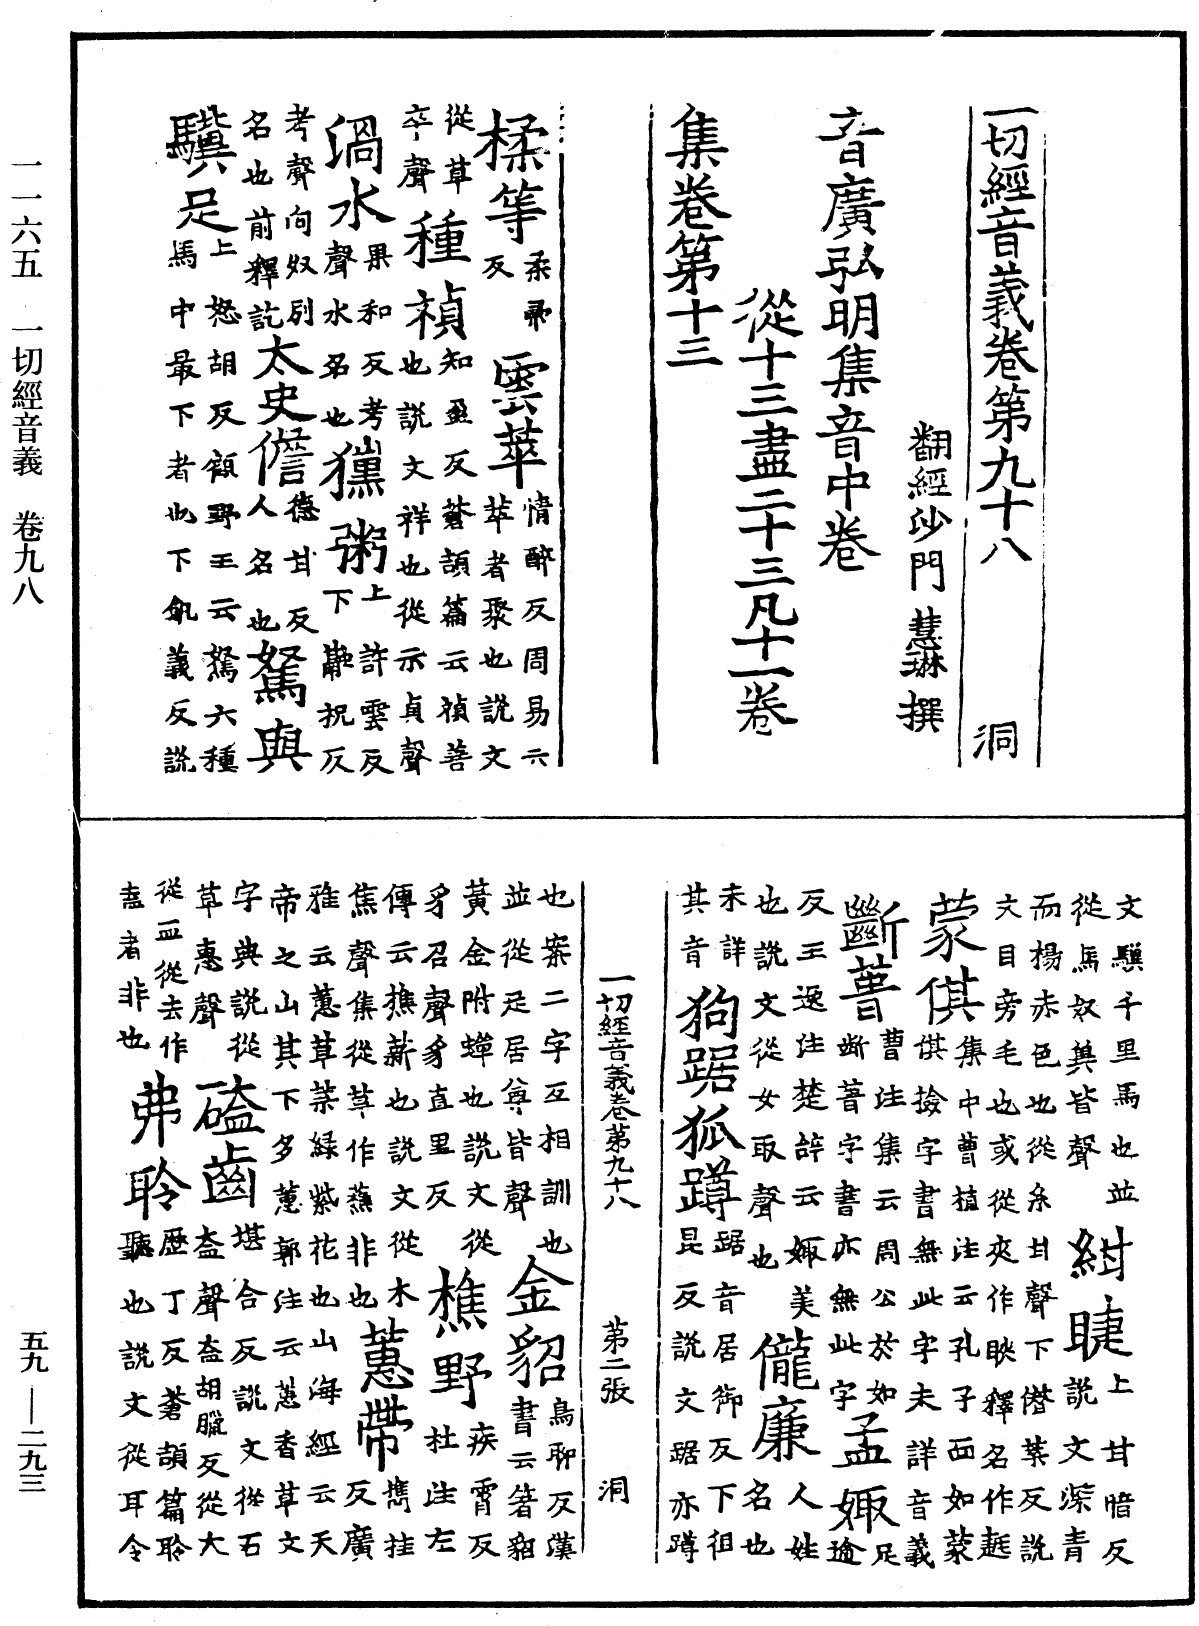 一切經音義卷第九十八 洞
翻經沙門 慧琳 撰
音廣弘明集音中卷
從十三盡二十三凡十一卷
集卷第十三
楺等 柔帚反 雲萃 情醉反周易云萃者聚也說文
從草卒聲 種禎 知盈反蒼頡篇云禎善也說文祥也從示貞聲
渦水 果和反考聲水名也 獯粥 上許雲反下融祝反
考聲向奴別名也前釋訖 太史儋 德甘反人名也 駑與
驥足 上怒胡反顧野王云駑六種馬中最下者也下飢義反說
文驥千里馬也並從馬奴兾皆聲 紺睫 上甘暗反說文深青
而揚赤色也從糸甘聲下僣葉反說文目旁毛也或從夾作䀹釋名作䟑
蒙倛 集中曹植注云孔子面如蒙倛撿字書無此字未詳音義
斷菑 曹注集云周公於如足斷菑字書亦無此字 孟娵 逾
反王逸注楚辭云娵美也說文從女取聲也 儱廉 人姓名也
未詳其音 狗踞狐蹲 踞音居御反下徂昆反說文踞亦蹲
也案二字互相訓也並從足居尊皆聲 金貂 鳥聊反漢書云箸貂
黃金附蟬也說文從豸召聲豸直里反 樵野 疾霄反杜注左
傳云樵薪也說文從木焦聲集從草作蕉非也 蕙帶 攜桂反廣
雅云蕙草菜緑紫花也山海經云天帝之山其下多蕙郭注云蕙香草文
字典說從草惠聲 磕齒 堪合反說文從石盍聲盍胡臘反從大
從皿從去作盍者非也 弗聆 歷丁反蒼頡篇聆聽也說文從耳令
一切經音義卷第九十八 第二張 洞
一一六五 一切經音義 卷九八
五九——二九三